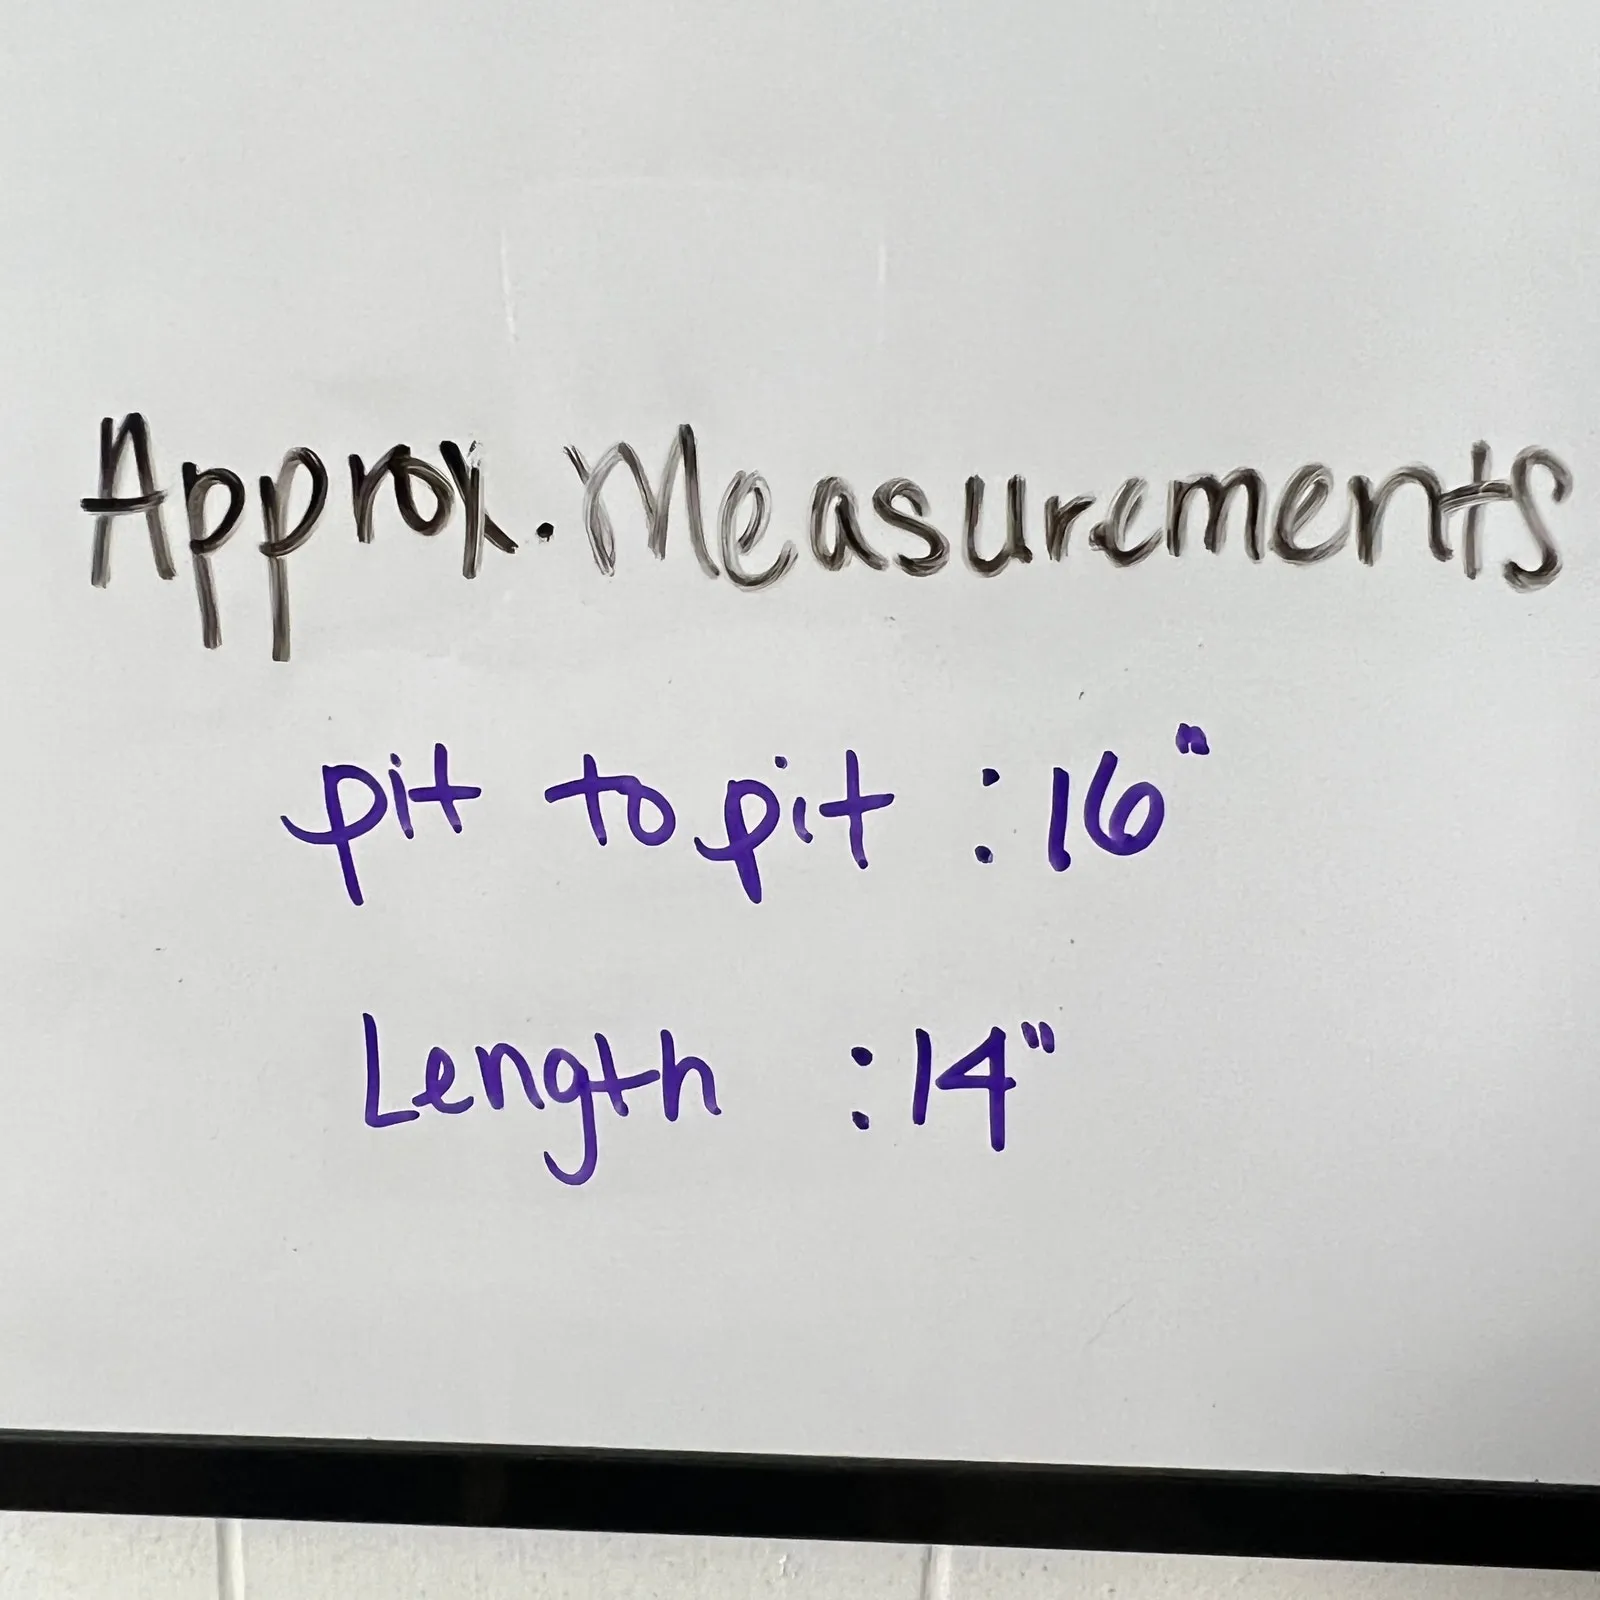 Approx. Measurements
pit to pit : 16"
Length : 14"